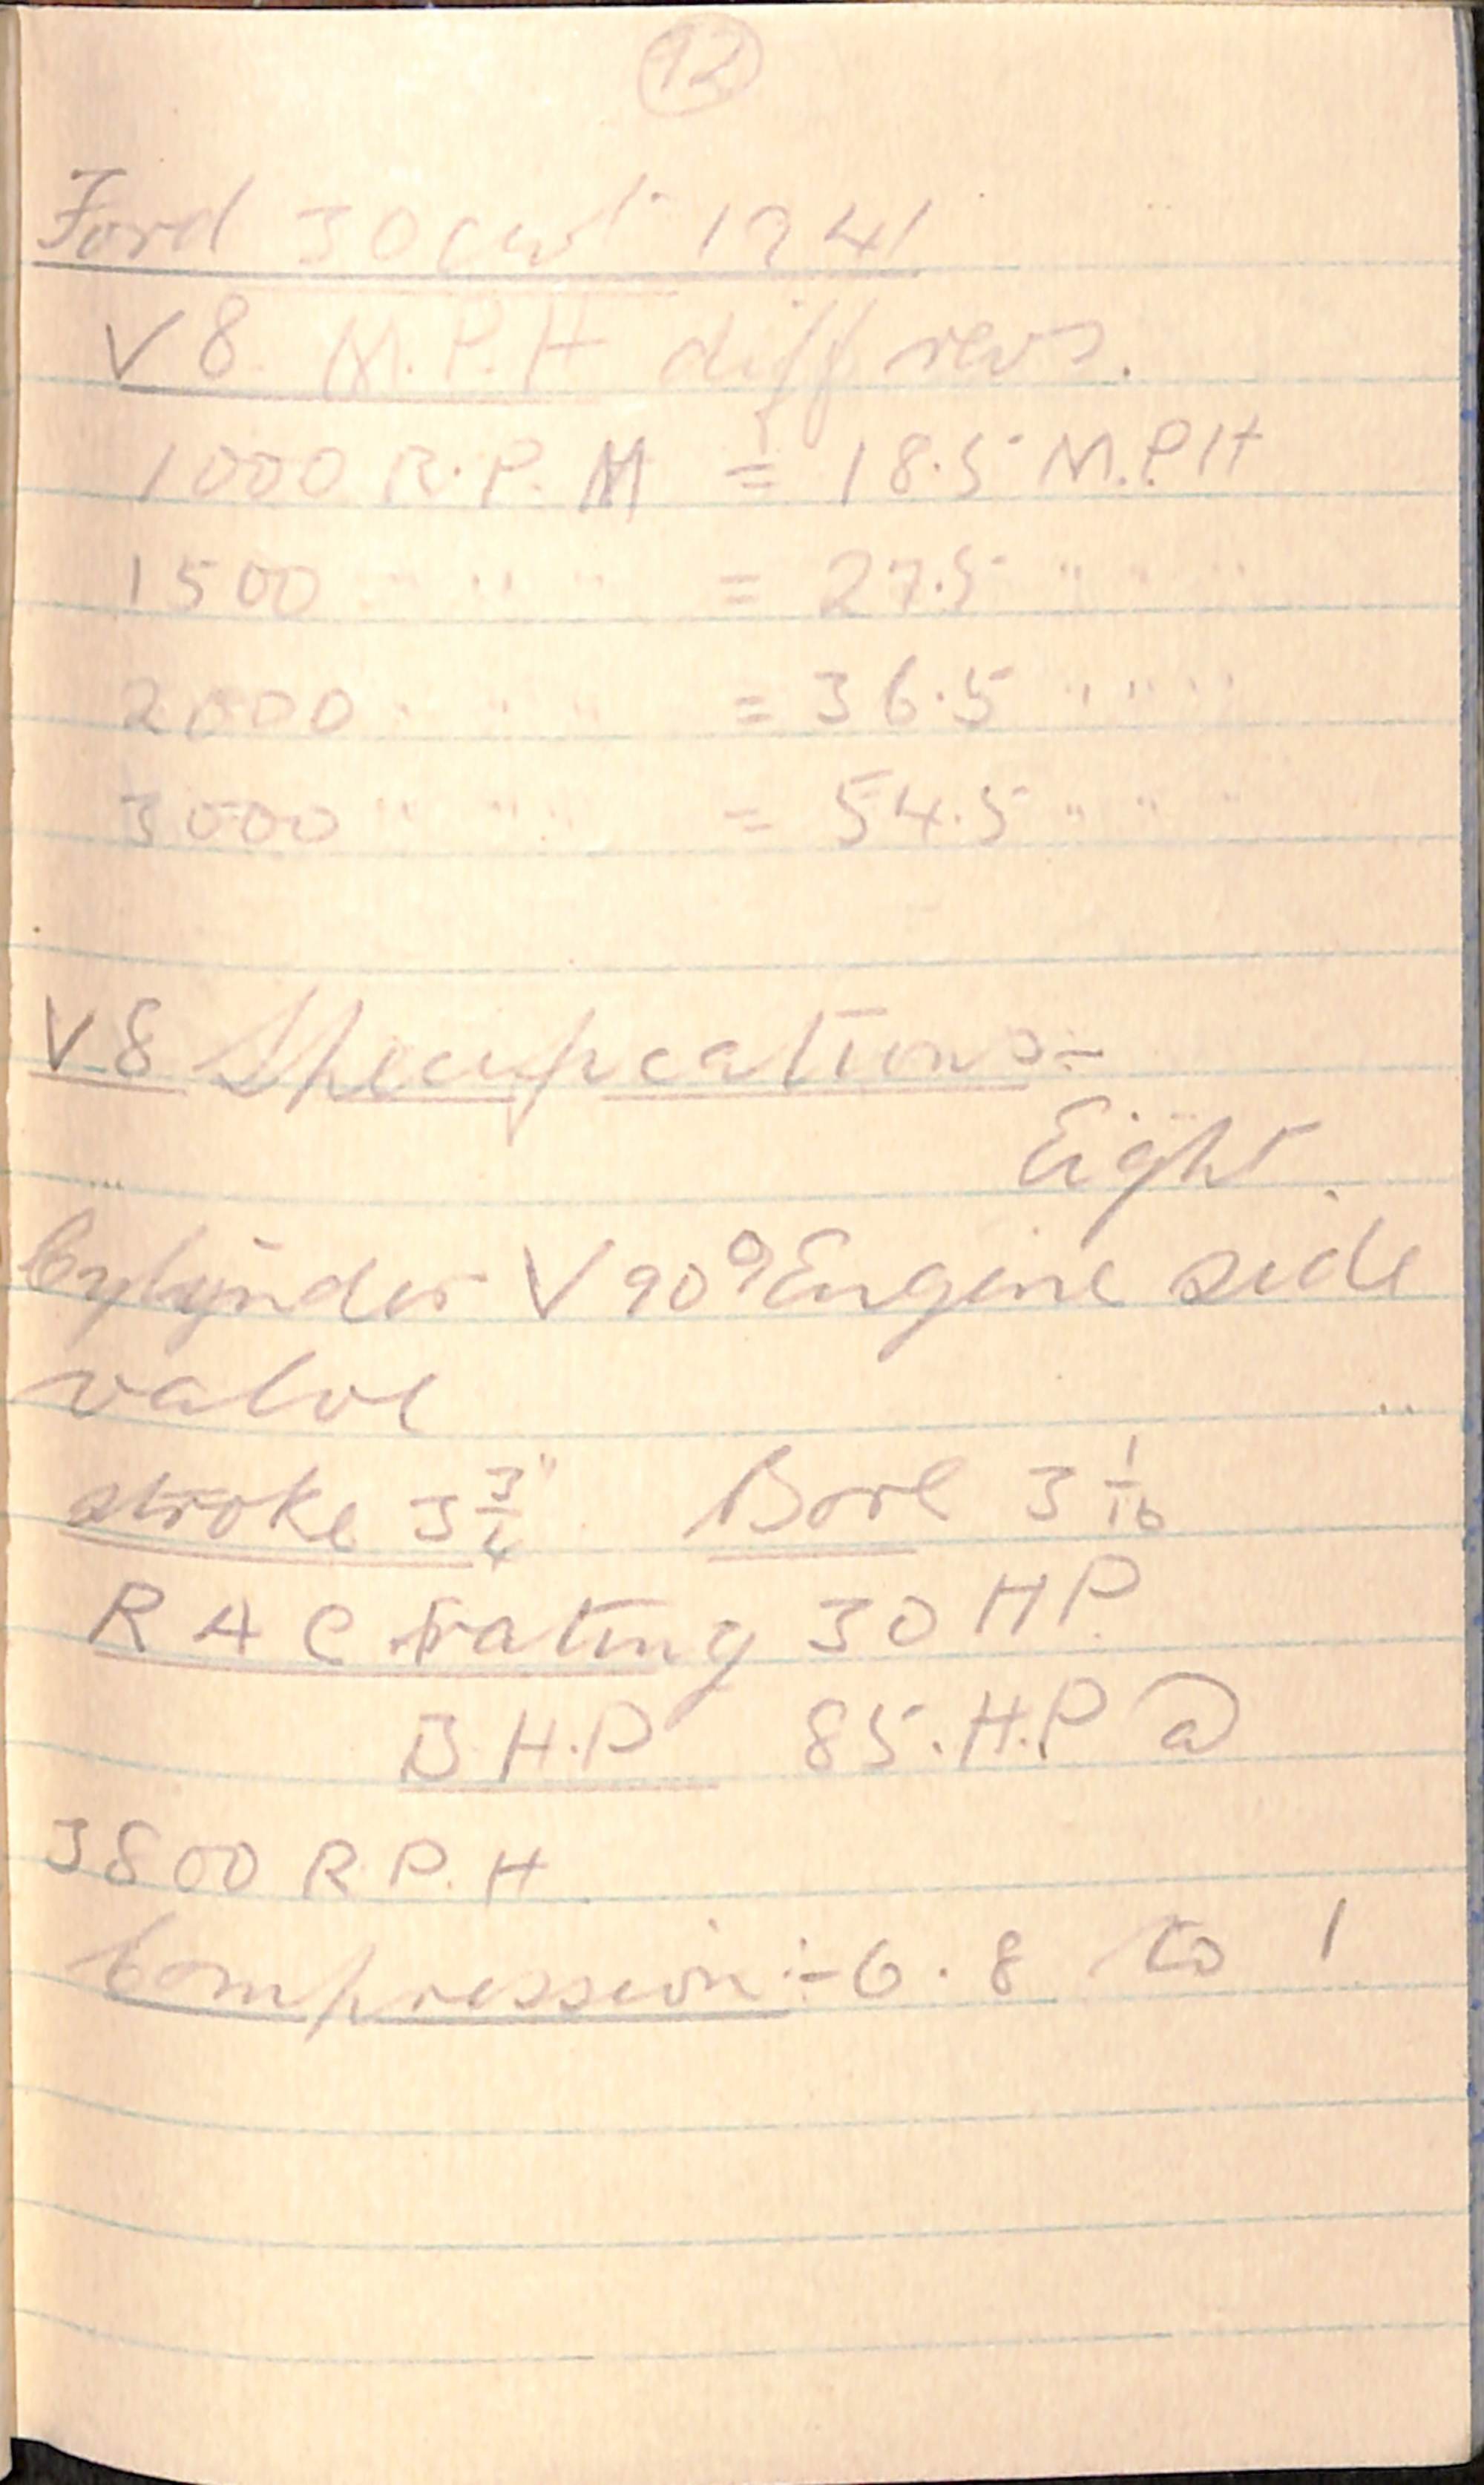 92
Ford 30 cwt 1941
V8 M.P.H diff revs.
1000 R.P.M = 18.5 M.P.H
1500 " " " = 27.5 " " "
2000 " " " = 36.5 " " "
3000 " " " = 54.5 " " "
V8 Specifications:-
Eight
Cylynder V 90° Engine side
valve
stroke 3 3/4" Bore 3 1/16
RAC rating 30 HP.
B.H.P 85.H.P @
3800 R.P.H
Compression:- 6.8 to 1